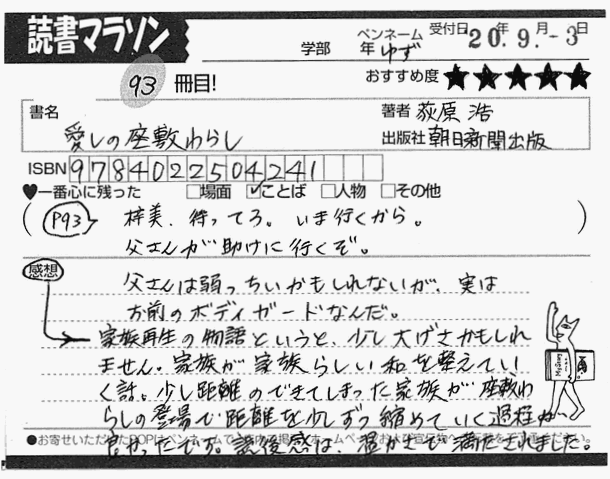 読書マラソン
学部 年 ペンネーム ゆず 受付日 20年. 9月. -3日
93 冊目! おすすめ度 ★★★★★
書名 愛しの座敷わらし
著者 荻原 浩
出版社 朝日新聞出版
ISBN 9784022504241
♥一番心に残った □場面 ☑ことば □人物 □その他
(P93) 梓美、待ってろ。いま行くから。
父さんが助けに行くぞ。
感想
父さんは弱っちいかもしれないが、実は
お前のボディガードなんだ。
家族再生の物語というと、少し大げさかもしれ
ません。家族が家族らしい和を整えてい
く話。少し距離のできてしまった家族が座敷わ
らしの登場で距離を少しずつ縮めていく過程が
良かったです。読後感は、温かさで満たされました。
●お寄せいただいたPOPはペンネームで
ホームページ